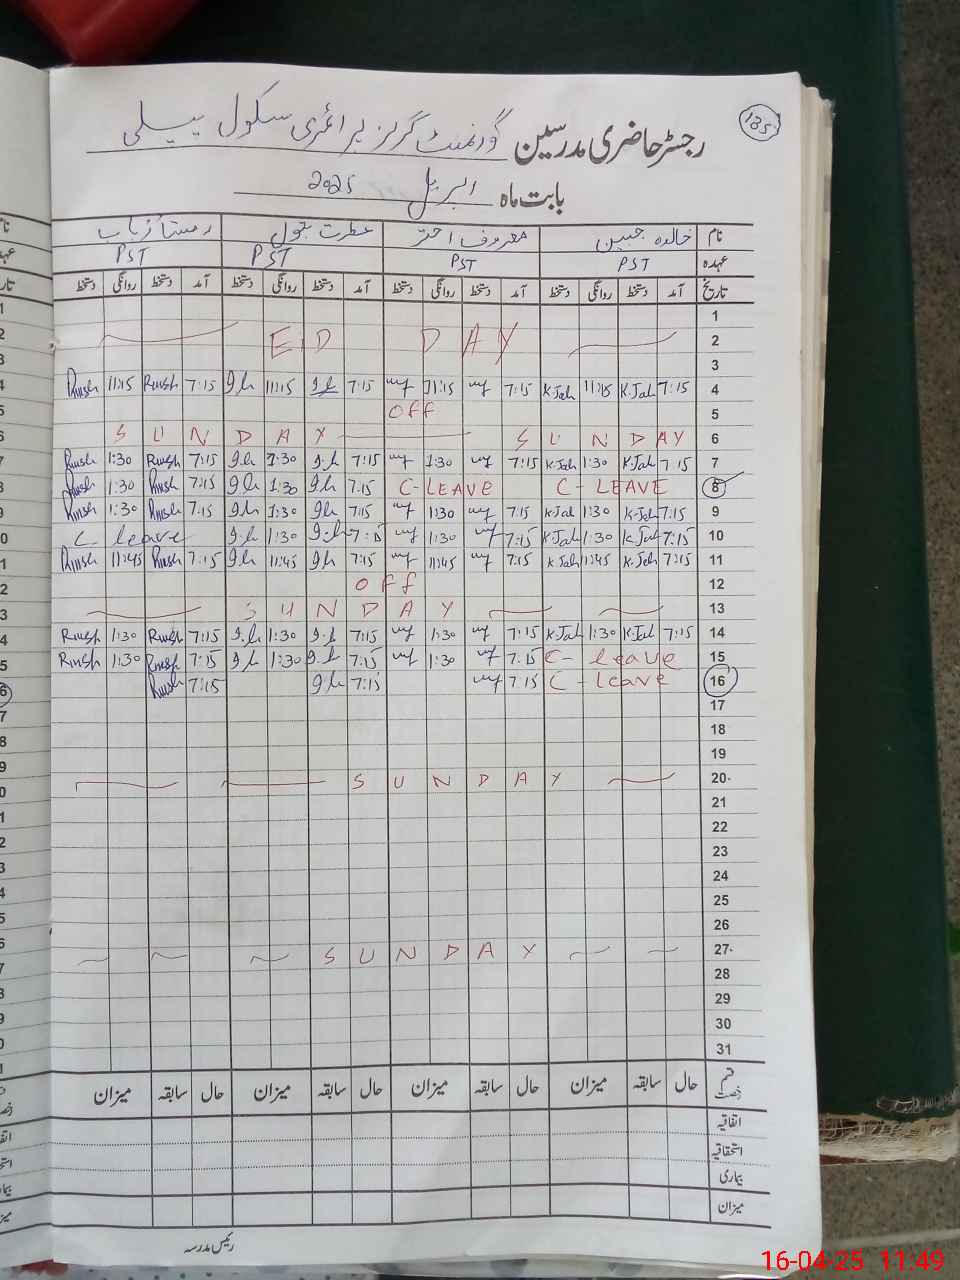 135
رجسٹر حاضری مدرسین گورنمنٹ گرلز پرائمری سکول
بابت ماہ اپریل 2025
نام خالدہ جبین معروف اختر عطرت بتول
عہدہ PST PST PST PST
تاریخ آمد دستخط روانگی دستخط آمد دستخط روانگی دستخط آمد دستخط روانگی دستخط آمد دستخط روانگی دستخط
1
2 EID DAY
3
4 7:15 K.Jah 11:15 K.Jah 7:15 11:15 7:15 g.h 11:15 g.h 7:15 Rmsh 11:15 Rmsh
5 OFF
6 SUNDAY SUNDAY
7 7:15 K.Jah 1:30 K.Jah 7:15 1:30 7:15 g.h 1:30 g.h 7:15 Rmsh 1:30 Rmsh
8 C-LEAVE C-LEAVE 7:15 g.h 1:30 g.h 7:15 Rmsh 1:30 Rmsh
9 7:15 K.Jah 1:30 K.Jah 7:15 1:30 7:15 g.h 1:30 g.h 7:15 Rmsh 1:30 Rmsh
10 7:15 K.Jah 1:30 K.Jah 7:15 1:30 7:15 g.h 1:30 g.h C leave
11 7:15 K.Jah 11:45 K.Jah 7:15 11:45 7:15 g.h 11:45 g.h 7:15 Rmsh 11:45 Rmsh
12 OFF
13 SUNDAY
14 7:15 K.Jah 1:30 K.Jah 7:15 1:30 7:15 g.h 1:30 g.h 7:15 Rmsh 1:30 Rmsh
15 C-leave 7:15 1:30 7:15 g.h 1:30 g.h 7:15 Rmsh 1:30 Rmsh
16 C-leave 7:15 7:15 g.h 7:15 Rmsh
17
18
19
20 SUNDAY
21
22
23
24
25
26
27 SUNDAY
28
29
30
31
قسم رخصت حال سابقہ میزان حال سابقہ میزان حال سابقہ میزان حال سابقہ میزان
اتفاقیہ
استحقاقیہ
بیماری
میزان
رئیس مدرسہ
16-04-25 11:49